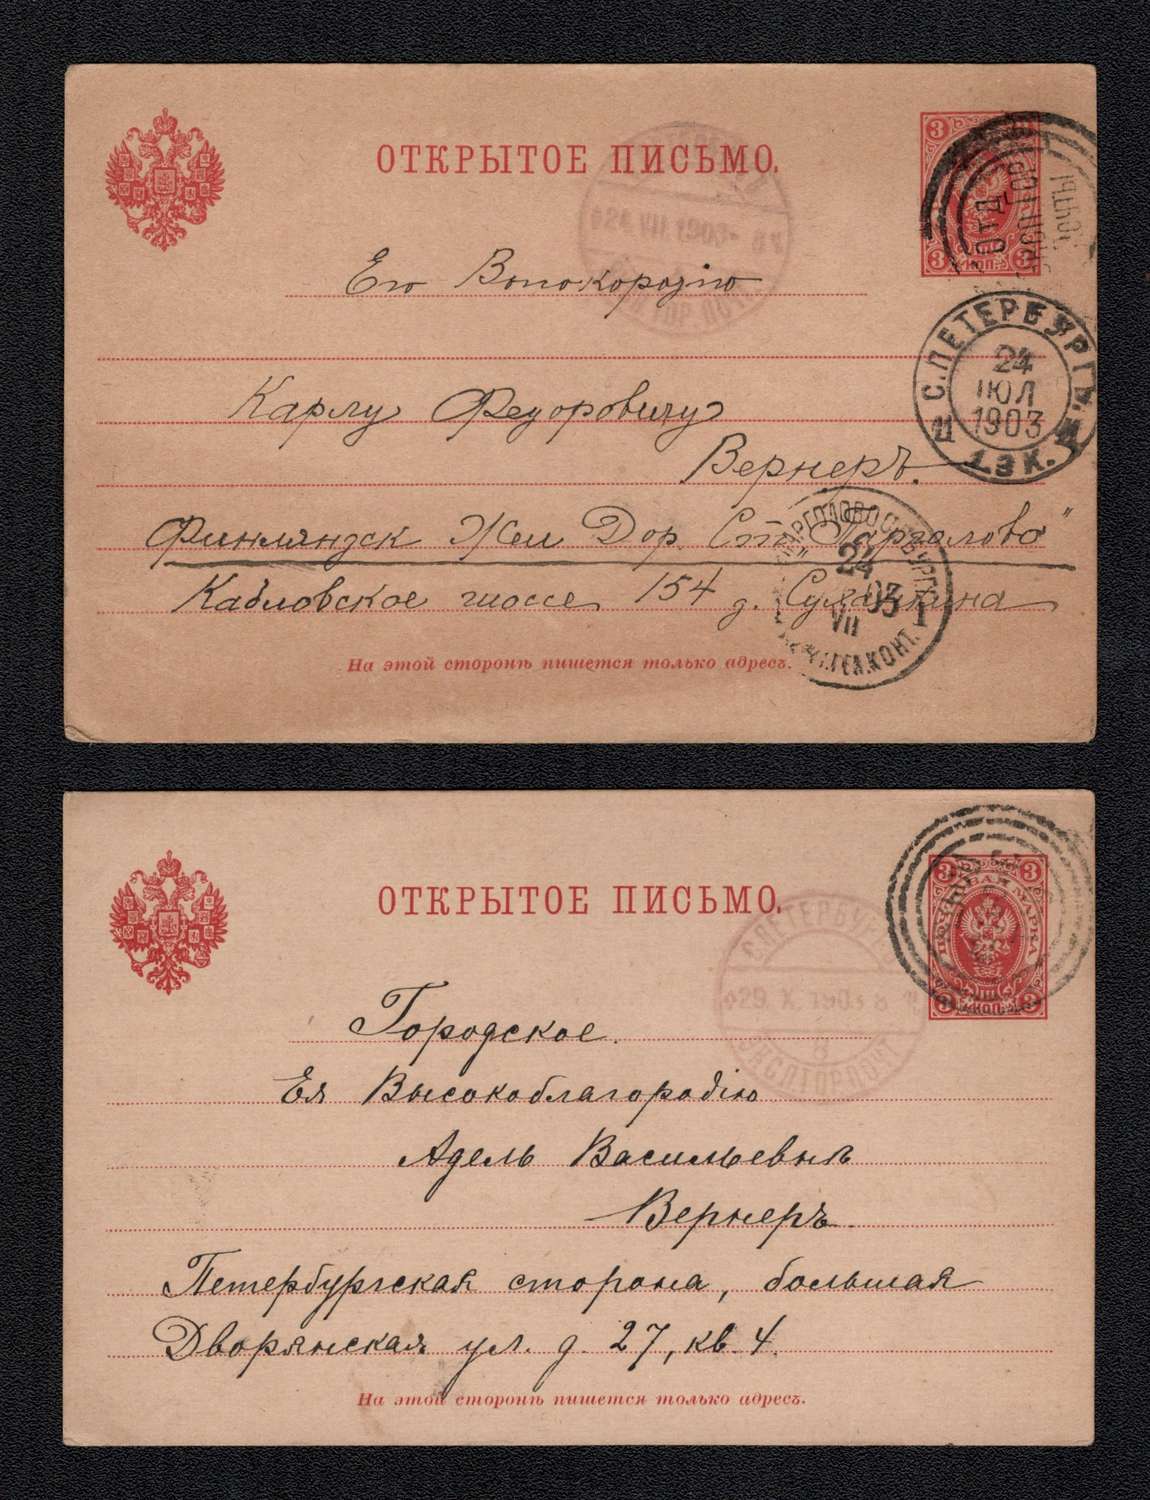 ОТКРЫТОЕ ПИСЬМО.
3 3
ОТД
3 КОП. 3
24 VII 1903
Его Высокородію
С.ПЕТЕРБУРГЪ
24
ІЮЛ
1903
11 11
1.ЭК.
Карлу Федоровичу
Вернеръ.
Финляндск Жел Дор. Ст. "Парголово"
24
VII 03
1
Кабловское шоссе 154 д.
КОНТ.
На этой сторонѣ пишется только адресъ.
ОТКРЫТОЕ ПИСЬМО.
3 3
ПОЧТОВАЯ МАРКА
3 КОП. 3
С.ПЕТЕРБУРГЪ
29. X. 1903 8
8
ЭКСП.ГОР.ПОЧТ
Городское.
Ея Высокоблагородію
Адель Васильевнѣ
Вернеръ
Петербургская сторона, большая
Дворянская ул. д. 27, кв. 4.
На этой сторонѣ пишется только адресъ.